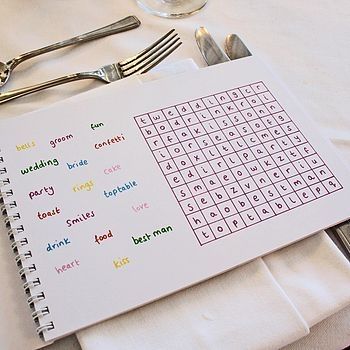 bells groom fun
wedding bride confetti
party rings cake
toast toptable
smiles love
drink food best man
heart kiss
t w e d d i n g c r
b o d r i n k r o n
e d i r l p a r t y
h a o b e s t m a n
t o p t a b l e p q